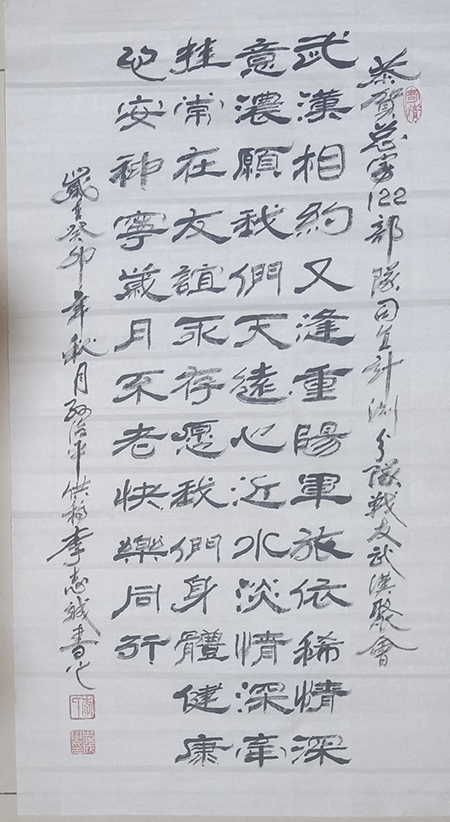 恭賀总122部隊司计测分隊戰友武漢聚會
武漢相約又逢重陽軍旅依稀情深
意濃願我們天遠心近水淡情深牽
挂常在友誼永存愿我們身體健康
心安神寧歲月不老快樂同行
歲癸卯年秋月治中供稿李志誠書